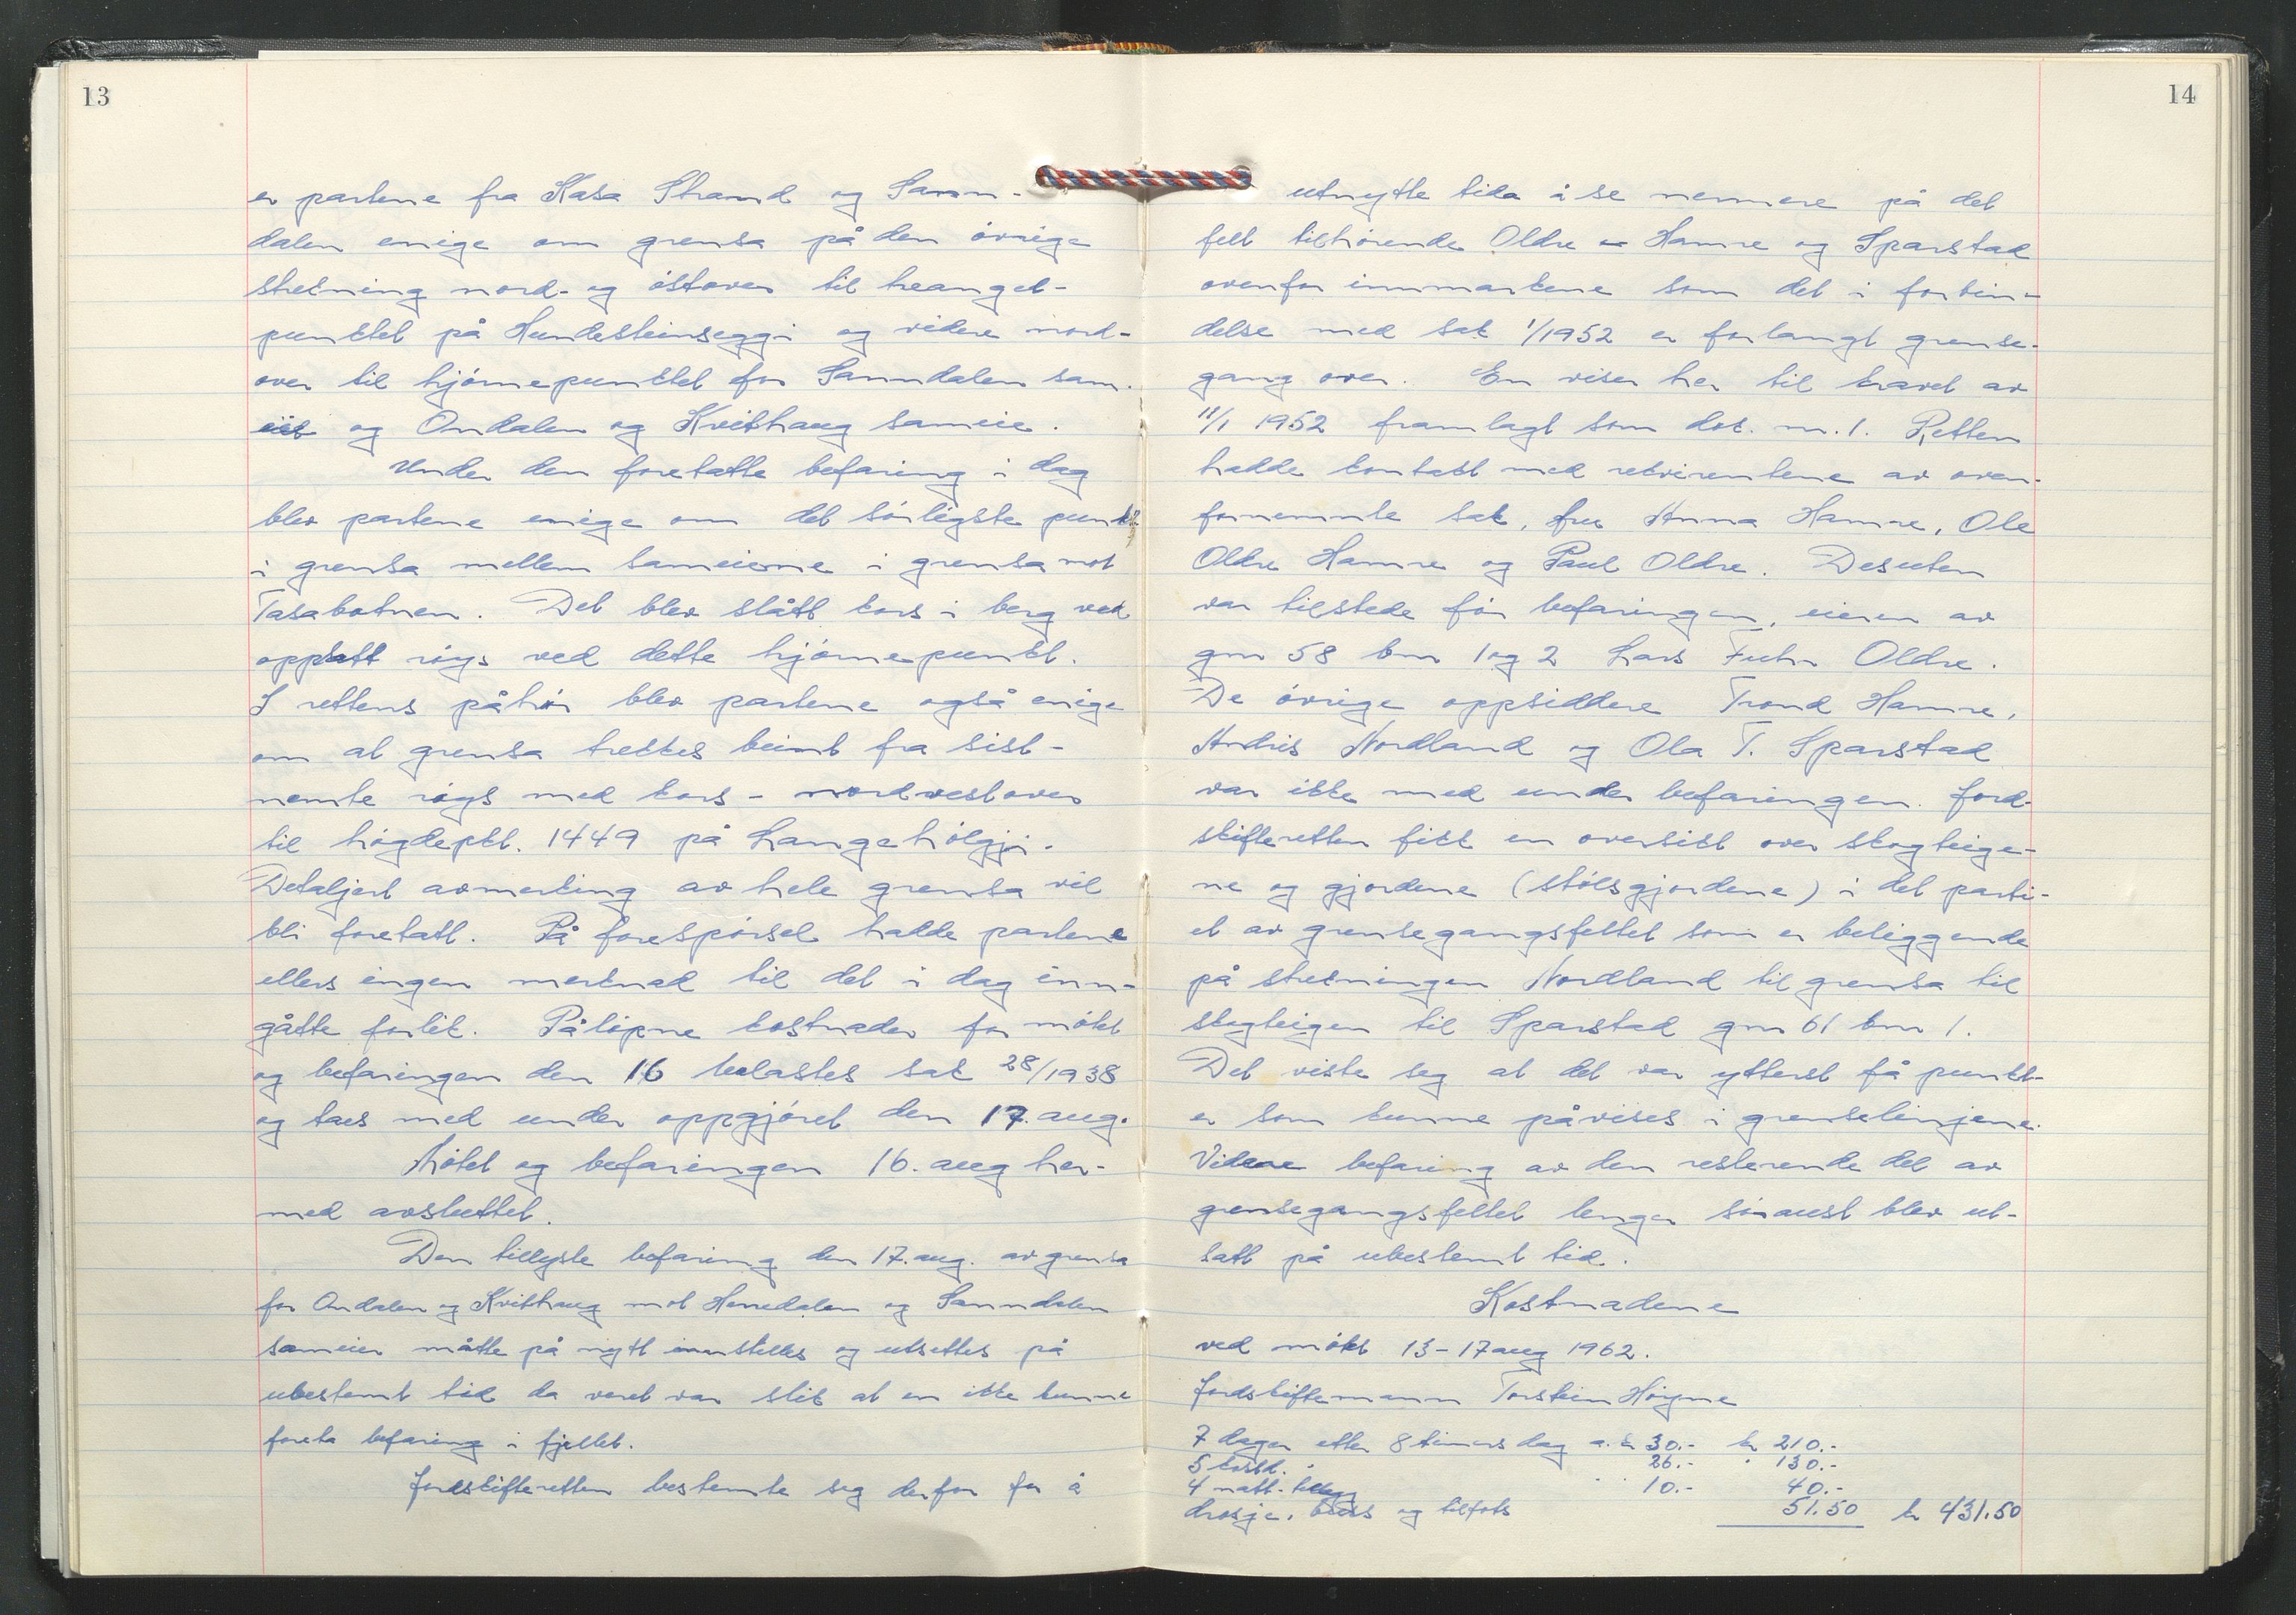 13
er partene fra Kasa Strand og Sann-
dalen enige om grensa på den øvrige
strekning nord- og østover til treangel-
punktet på Hundesteinseggi og videre nord-
over til hjørnepunktet for Sanndalen sam-
eie og Ondalen og Kvithaug sameie.
Under den foretatte befaring i dag
blev partene enige om det sørligste punkt
i grensa mellem sameierne i grensa mot
Tasabotnen. Det blev slått kors i berg ved
oppsatt røys ved dette hjørnepunkt.
I rettens påhør blev partene også enige
om at grensa trekkes beint fra sist-
nemte røys med kors - nordvestover
til høgdepkt. 1449 på Langehølgji.
Detaljert avmerking av hele grensa vil
bli foretatt. På forespørsel hadde partene
ellers ingen merknad til det i dag inn-
gåtte forlik. Påløpne kostnader for møtet
og befaringen den 16 belastes sak 28/1938
og taes med under oppgjøret den 17. aug.
Møtet og befaringen 16. aug her-
med avsluttet.
Den tillyste befaring den 17. aug. av grensa
for Ondalen og Kvithaug mot Herredalen og Sanndalen
sameier måtte på nytt innstilles og utsettes på
ubestemt tid da veret var slik at en ikke kunne
foreta befaring i fjellet.
Jordskifteretten bestemte seg derfor for å
14
utnytte tida å se nermere på det
felt tilhørende Oldre - Hamre og Sparstad
ovenfor innmarkene som det i forbin-
delse med sak 1/1952 er forlangt grense-
gang over. En viser her til kravet av
11/1 1952 framlagt som dok. nr. 1. Retten
hadde kontakt med rekvirentene av oven-
fornemnte sak, fru Anna Hamre, Ole
Oldre Hamre og Paul Oldre. Desuten
var tilstede før befaringen, eieren av
gnr 58 bnr 1 og 2 Lars Fuhr Oldre.
De øvrige oppsiddere Trond Hamre,
Andris Nordland og Ola T. Sparstad
var ikke med under befaringen. Jord-
skifteretten fikk en oversikt over skogteige-
ne og gjordene (stølsgjordene) i det parti-
et av grensegangsfeltet som er beliggende
på strekningen Nordland til grensa til
skogteigen til Sparstad gnr 61 bnr 1.
Det viste seg at det var ytterst få punkt-
er som kunne påvises i grenselinjene.
Videre befaring av den resterende del av
grensegangsfeltet lenger søraust blev ut-
satt på ubestemt tid.
Kostnadene
ved møtet 13-17 aug 1962.
Jordskiftemann Torstein Høgne
7 dager etter 8 timers dag a. kr 30.- kr 210.-
5 kostd. 26.- " 130.-
4 natt. tillegg 10.- 40.-
drosje, buss og tilfots 51.50 kr 431.50